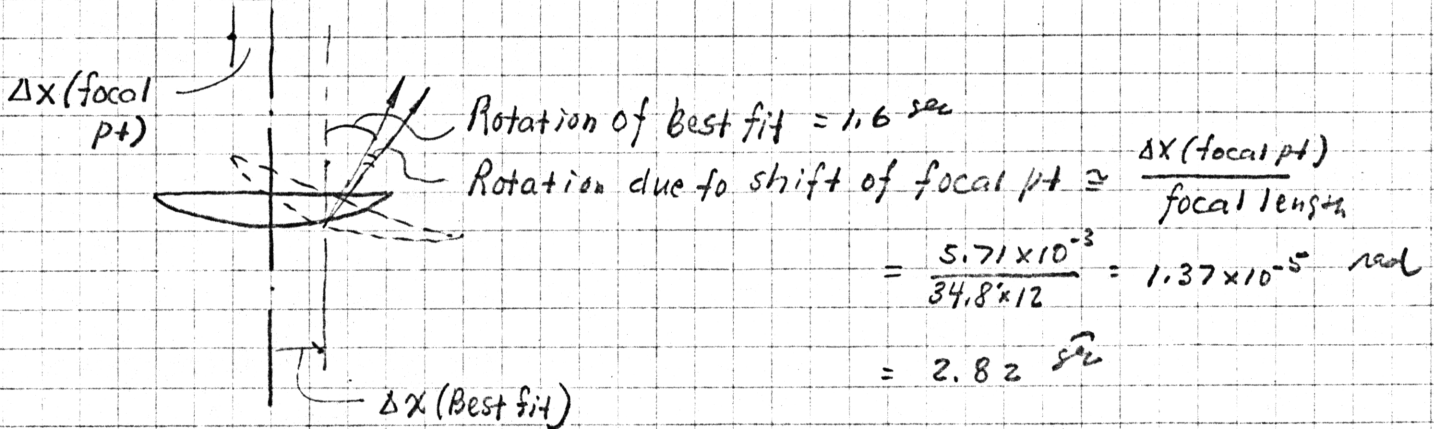 Δx (focal
pt)
Rotation of Best fit = 1.6 sec
Rotation due to shift of focal pt ≅ Δx (focal pt) / focal length
= 5.71 x 10⁻³ / 34.8' x 12 = 1.37 x 10⁻⁵ rad
= 2.82 sec
Δx (Best fit)